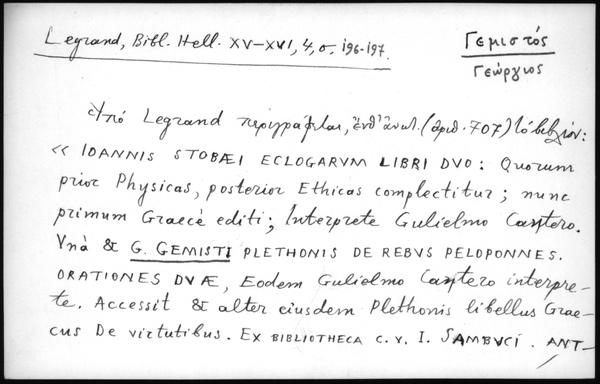 Legrand, Bibl. Hell. XV–XVI, 4, σ. 196-197.
Γεμιστός
Γεώργιος
Ὑπό Legrand περιγράφεται, ἔνθ' ἀνωτ. (ἀριθ. 707) τό βιβλίον:
« IOANNIS STOBÆI ECLOGARVM LIBRI DVO: Quorum
prior Physicas, posterior Ethicas complectitur; nunc
primum Graecè editi; Interprete Gulielmo Cantero.
Vnà & G. GEMISTI PLETHONIS DE REBVS PELOPONNES.
ORATIONES DVÆ, Eodem Gulielmo Cantero interpre-
te. Accessit & alter eiusdem Plethonis libellus Grae-
cus De virtutibus. EX BIBLIOTHECA C. V. I. SAMBVCI. ANT-